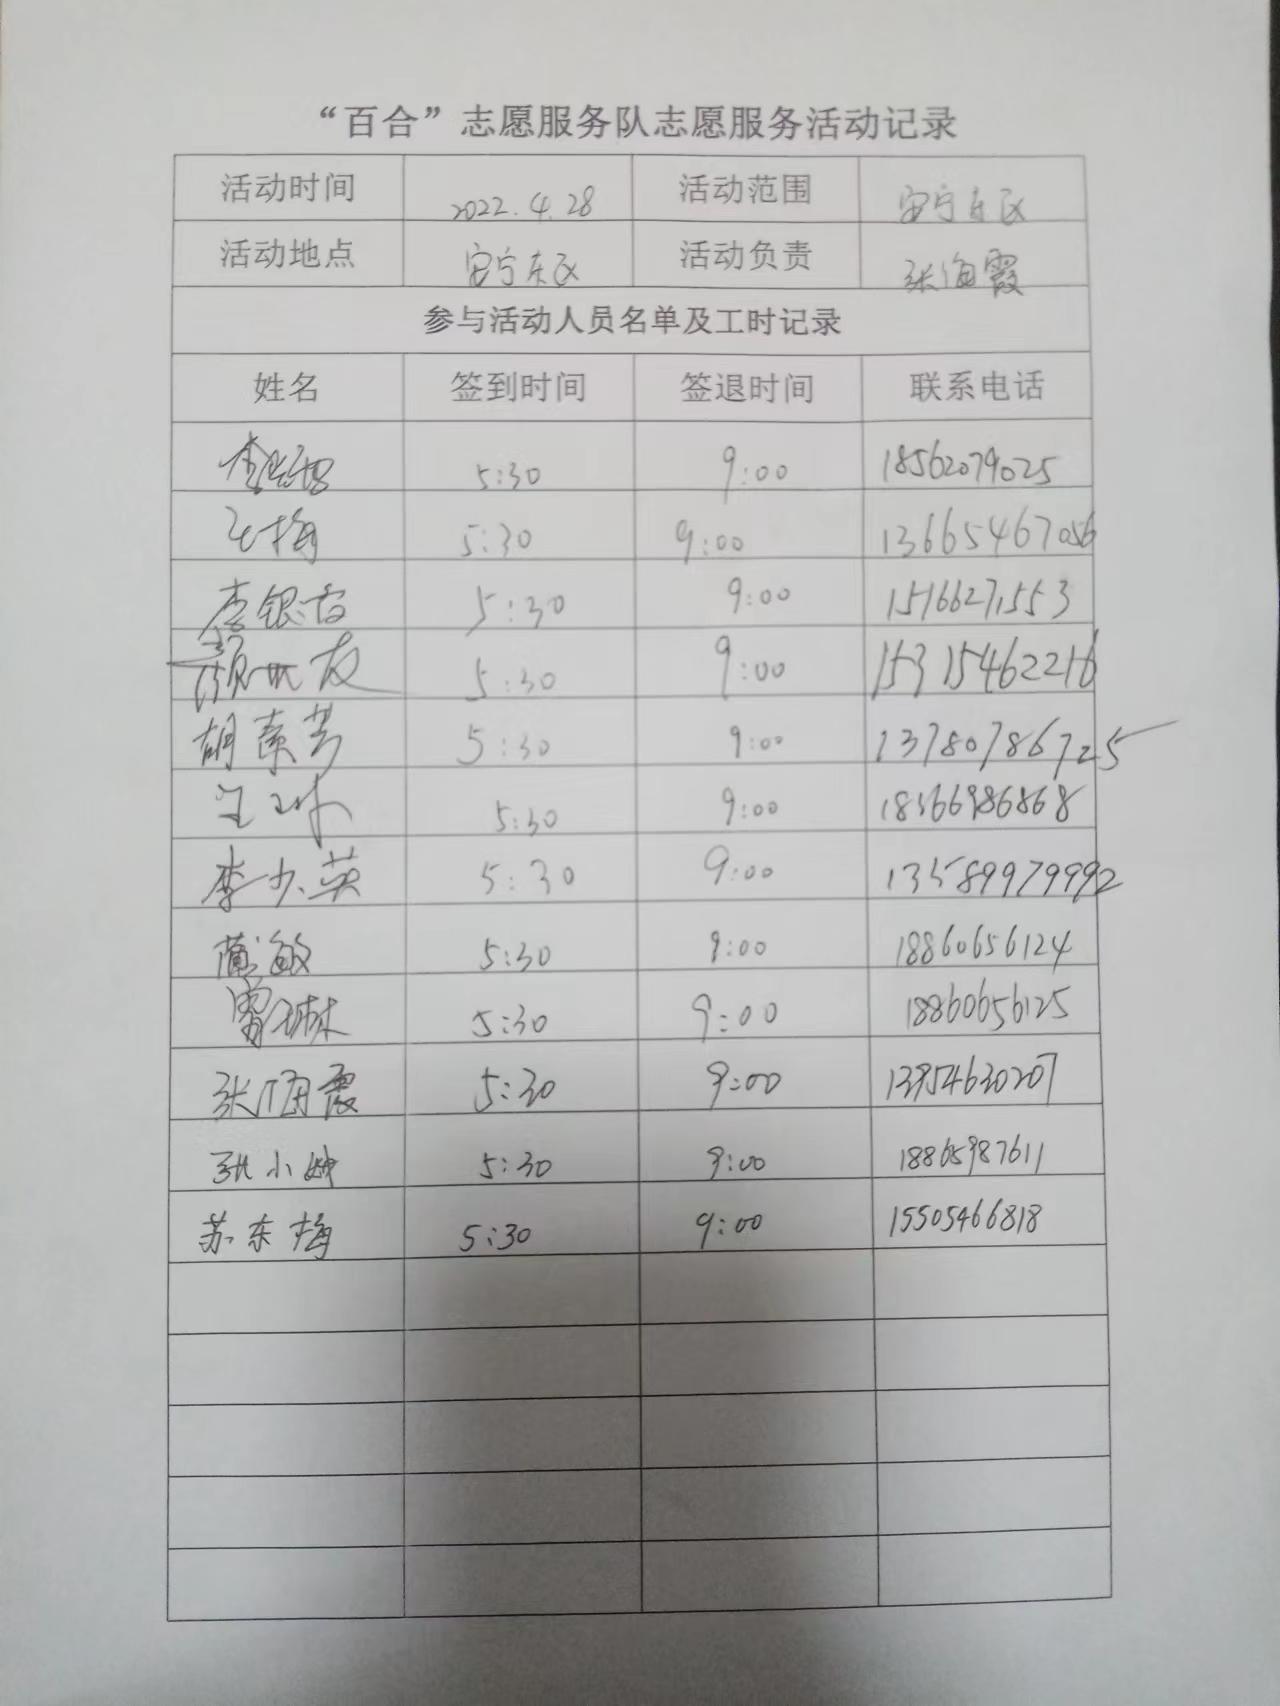 “百合”志愿服务队志愿服务活动记录
活动时间 2022.4.28 活动范围 安宁东区
活动地点 安宁东区 活动负责 张海霞
参与活动人员名单及工时记录
姓名 签到时间 签退时间 联系电话
5:30 9:00 18562079025
王梅 5:30 9:00 13665467056
李银 5:30 9:00 15166271553
5:30 9:00 15315462216
胡素芳 5:30 9:00 13780786725
5:30 9:00 18366986868
李少英 5:30 9:00 13589979992
蒲敏 5:30 9:00 18860656124
5:30 9:00 18860656125
张海霞 5:30 9:00 13954630207
张小 5:30 9:00 18865987611
苏东梅 5:30 9:00 15505466818